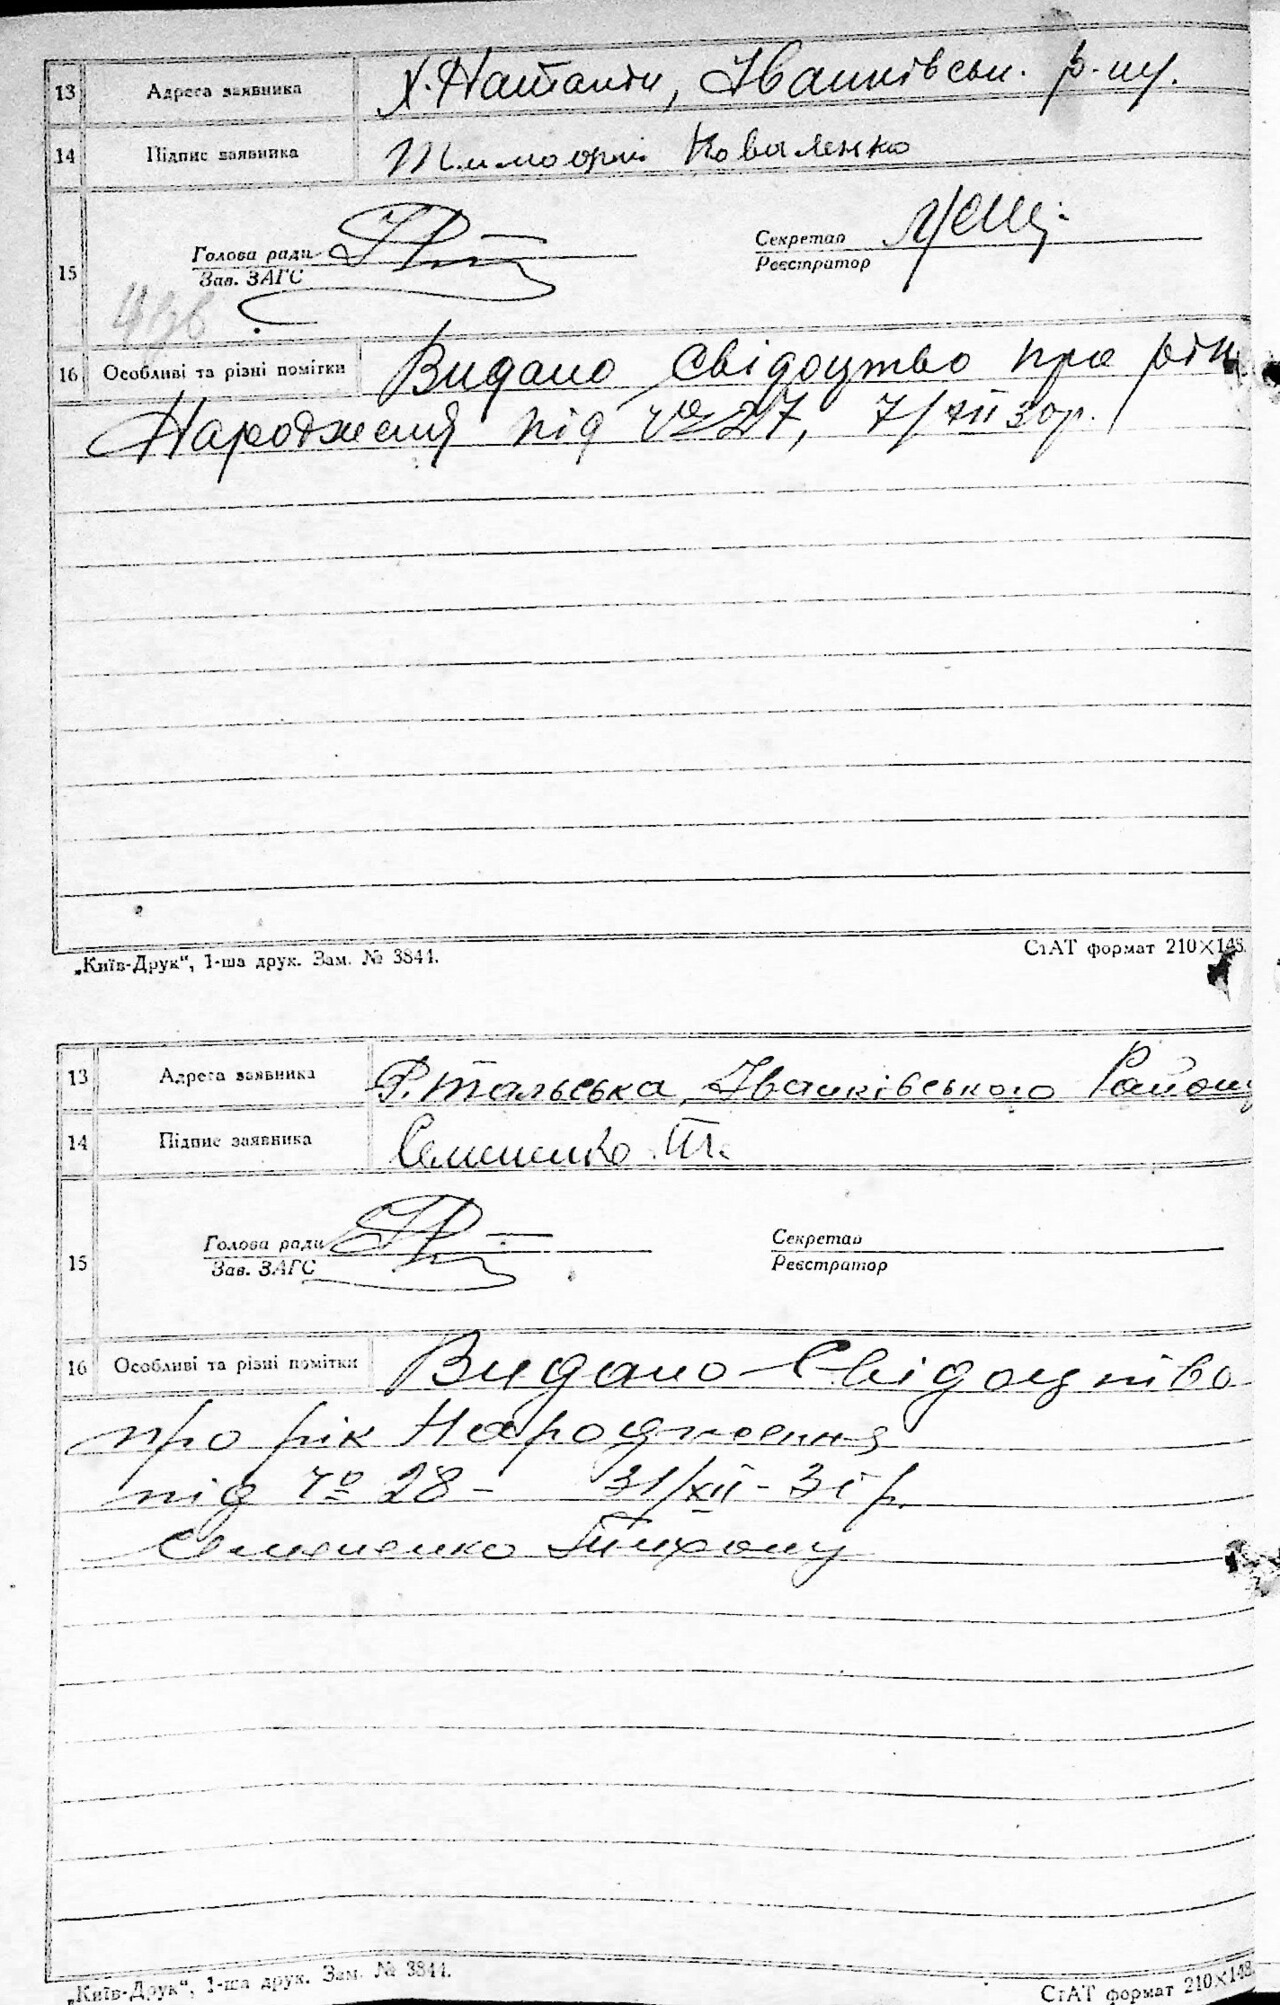 13 Адреса заявника Х. Натанти, Іванківськ. р-ну.
14 Підпис заявника Тимофій Коваленко
Голова ради Секретар
15 Зав. ЗАГС Реєстратор
16 Особливі та різні помітки Видано Свідоцтво про рік
Народженя під № 27, 7/XII 30р.
„Київ-Друк“, 1-ша друк. Зам. № 3844. СтАТ формат 210×148.
13 Адреса заявника Р. Тальська, Іванківського Району
14 Підпис заявника Семененко Т.
Голова ради Секретар
15 Зав. ЗАГС Реєстратор
16 Особливі та різні помітки Видано Свідоцтво
про рік Народження
під № 28 – 31/XII - 31 р.
Семененко Тихону
„Київ-Друк“, 1-ша друк. Зам. № 3844. СтАТ формат 210×148